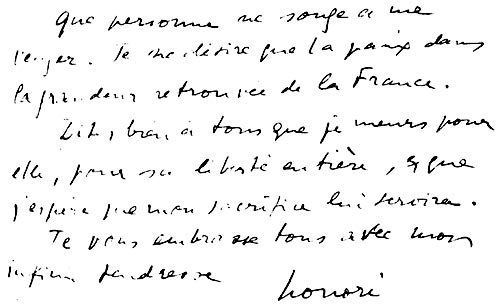 Que personne ne songe à me
venger. Je ne désire que la paix dans
la grandeur retrouvée de la France.
Dites bien à tous que je meurs pour
elle, pour sa liberté entière, & que
j'espère que mon sacrifice lui servira.
Je vous embrasse tous avec mon
infinie tendresse
honoré